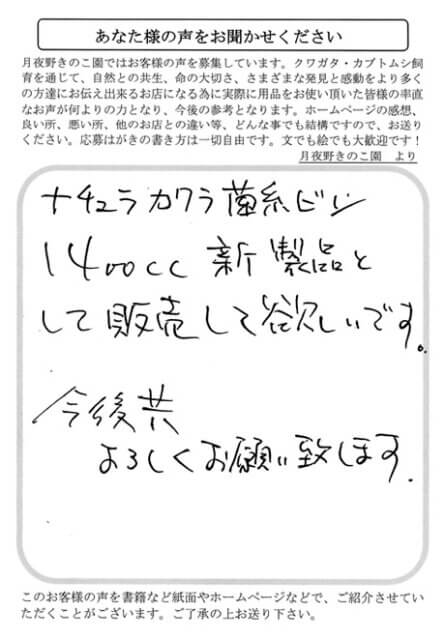 あなた様の声をお聞かせください
月夜野きのこ園ではお客様の声を募集しています。クワガタ・カブトムシ飼
育を通じて、自然との共生、命の大切さ、さまざまな発見と感動をより多く
の方達にお伝え出来るお店になる為に実際に用品をお使い頂いた皆様の率直
なお声が何よりの力となり、今後の参考となります。ホームページの感想、
良い所、悪い所、他のお店との違い等、どんな事でも結構ですので、お送り
ください。応募はがきの書き方は一切自由です。文でも絵でも大歓迎です！
月夜野きのこ園　より
ナチュラカワラ菌糸ビン
1400cc 新製品と
して販売して欲しいです。
今後共
よろしくお願い致します.
このお客様の声を書籍など紙面やホームページなどで、ご紹介させてい
ただくことがございます。ご了承の上お送り下さい。